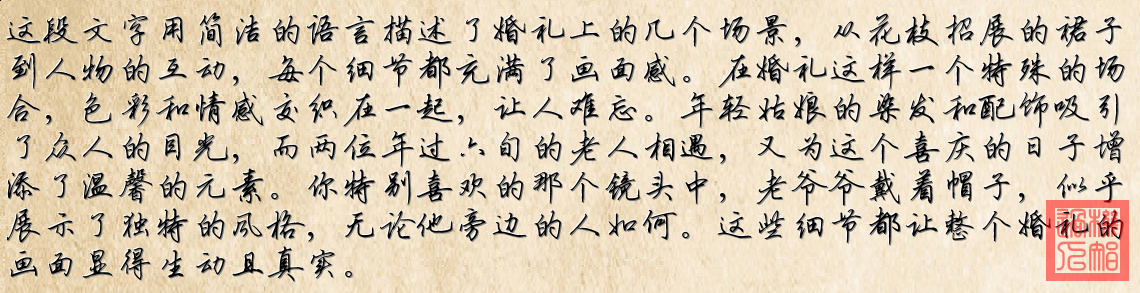 这段文字用简洁的语言描述了婚礼上的几个场景，从花枝招展的裙子
到人物的互动，每个细节都充满了画面感。在婚礼这样一个特殊的场
合，色彩和情感交织在一起，让人难忘。年轻姑娘的染发和配饰吸引
了众人的目光，而两位年过六旬的老人相遇，又为这个喜庆的日子增
添了温馨的元素。你特别喜欢的那个镜头中，老爷爷戴着帽子，似乎
展示了独特的风格，无论他旁边的人如何。这些细节都让整个婚礼的
画面显得生动且真实。